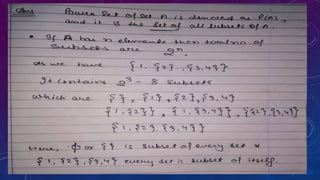 Ans Power Set of Set A is denoted as P(A),
and it is the set of all subsets of A.
• If A has n elements then total no of
Subsets are 2ⁿ.
As we have { 1, {2}, {3,4}}
It contains 2³ = 8 Subsets
which are { }, {1}, {2}, {3,4}
{1, {2}}, {1, {3,4}}, {{2}, {3,4}}
{1, {2}, {3,4}}
Here, ϕ or { } is subset of every set &
{1, {2}, {3,4} every set is subset of itself.